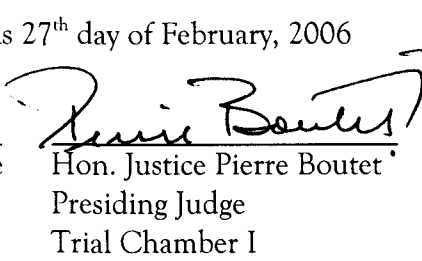 s 27th day of February, 2006
Pierre Boutet
e Hon. Justice Pierre Boutet
Presiding Judge
Trial Chamber I